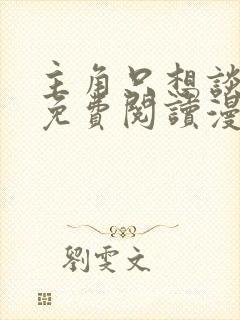 主角只想談
免費閱讀漫
劉雯文